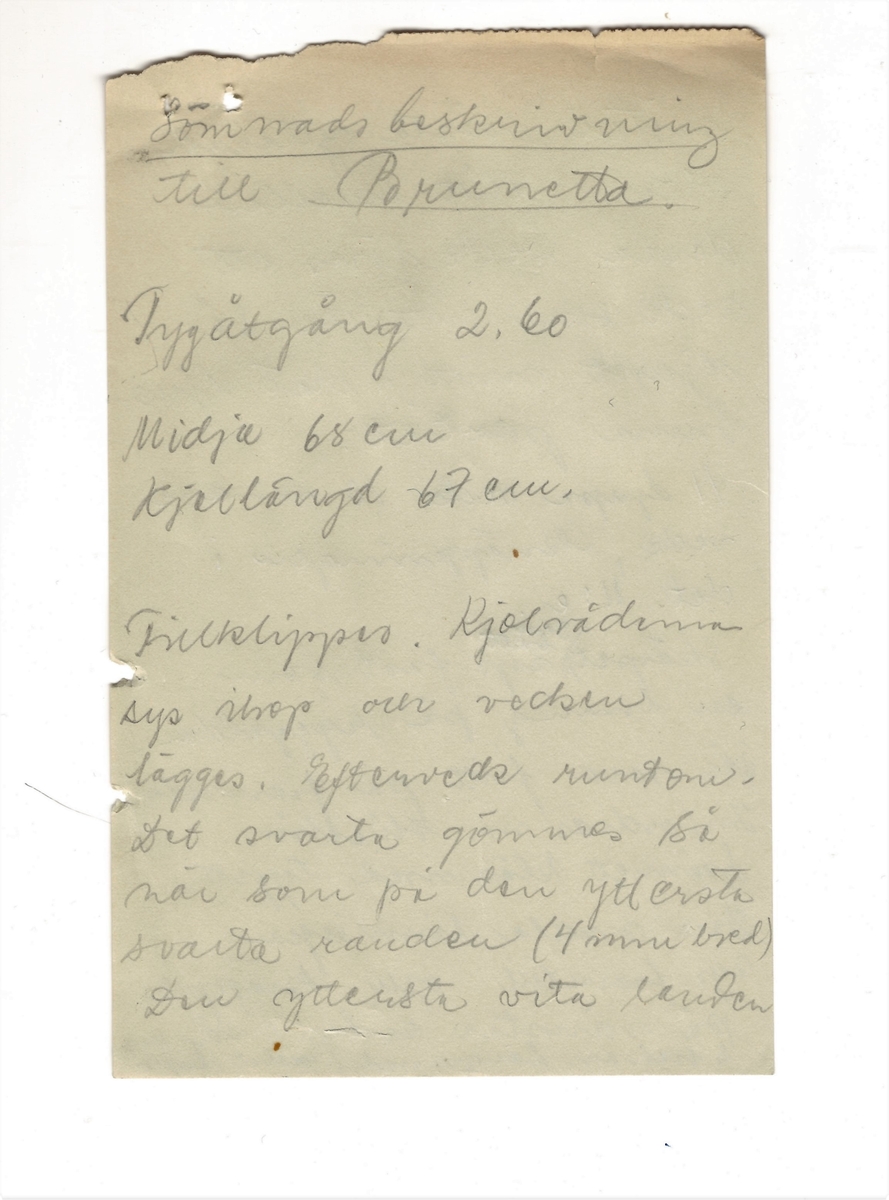 Sömnadsbeskrivning
till Brunetta.
Tygåtgång 2.60
Midja 68 cm
Kjollängd 67 cm.
Tillklippes. Kjolvåderna
sys ihop och vecken
lägges. Efterveck runtom.
Det svarta gömmes så
när som på den yttersta
svarta randen (4 mm bred)
Den yttersta vita randen